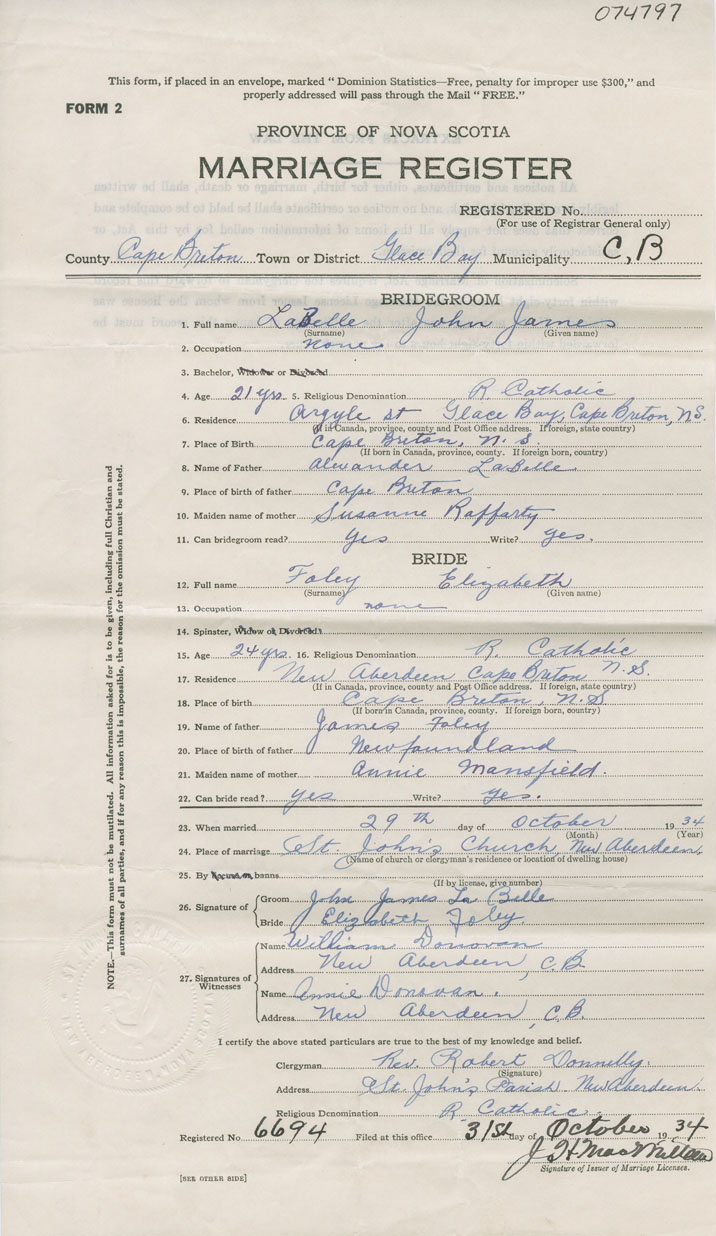 074797
This form, if placed in an envelope, marked " Dominion Statistics—Free, penalty for improper use $300," and
properly addressed will pass through the Mail " FREE."
FORM 2
PROVINCE OF NOVA SCOTIA
MARRIAGE REGISTER
REGISTERED No.
(For use of Registrar General only)
County Cape Breton Town or District Glace Bay Municipality C,B
BRIDEGROOM
1. Full name LaBelle John James
(Surname) (Given name)
2. Occupation none
3. Bachelor, Widower or Divorced
4. Age 21 yrs. 5. Religious Denomination R. Catholic
6. Residence Argyle st Glace Bay, Cape Breton, N.S.
(If in Canada, province, county and Post Office address. If foreign, state country)
7. Place of Birth Cape Breton, N. S.
(If born in Canada, province, county. If foreign born, country)
8. Name of Father Alexander LaBelle
9. Place of birth of father Cape Breton
10. Maiden name of mother Susanne Rafferty
11. Can bridegroom read? Yes Write? yes.
BRIDE
12. Full name Foley Elizabeth
(Surname) (Given name)
13. Occupation none
14. Spinster, Widow or Divorced
15. Age 24 yrs. 16. Religious Denomination R. Catholic
17. Residence New Aberdeen Cape Breton N.S.
(If in Canada, province, county and Post Office address. If foreign, state country)
18. Place of birth Cape Breton, N.S.
(If born in Canada, province, county. If foreign born, country)
19. Name of father James Foley
20. Place of birth of father Newfoundland
21. Maiden name of mother Annie Mansfield.
22. Can bride read? yes Write? yes.
23. When married 29th day of October 1934
(Month) (Year)
24. Place of marriage St. John's Church New Aberdeen,
(Name of church or clergyman's residence or location of dwelling house)
25. By license or banns
(If by license, give number)
26. Signature of Groom John James La Belle
Bride Elizabeth Foley.
27. Signatures of Witnesses Name William Donovan
Address New Aberdeen, C.B.
Name Annie Donovan.
Address New Aberdeen, C.B.
I certify the above stated particulars are true to the best of my knowledge and belief.
Clergyman Rev. Robert Donnelly.
(Signature)
Address St. John's Parish New Aberdeen.
Religious Denomination R. Catholic.
Registered No. 6694 Filed at this office 31st day of October 1934
J H MacMillan
Signature of Issuer of Marriage Licenses.
[SEE OTHER SIDE]
NOTE.—This form must not be mutilated. All information asked for is to be given, including full Christian and
surnames of all parties, and if for any reason this is impossible, the reason for the omission must be stated.